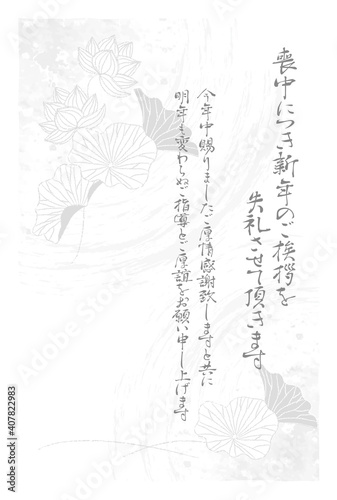 喪中につき新年のご挨拶を
失礼させて頂きます
今年中賜りましたご厚情感謝致しますと共に
明年も変わらぬご指導とご厚誼をお願い申し上げます
Adobe Stock | #407822983